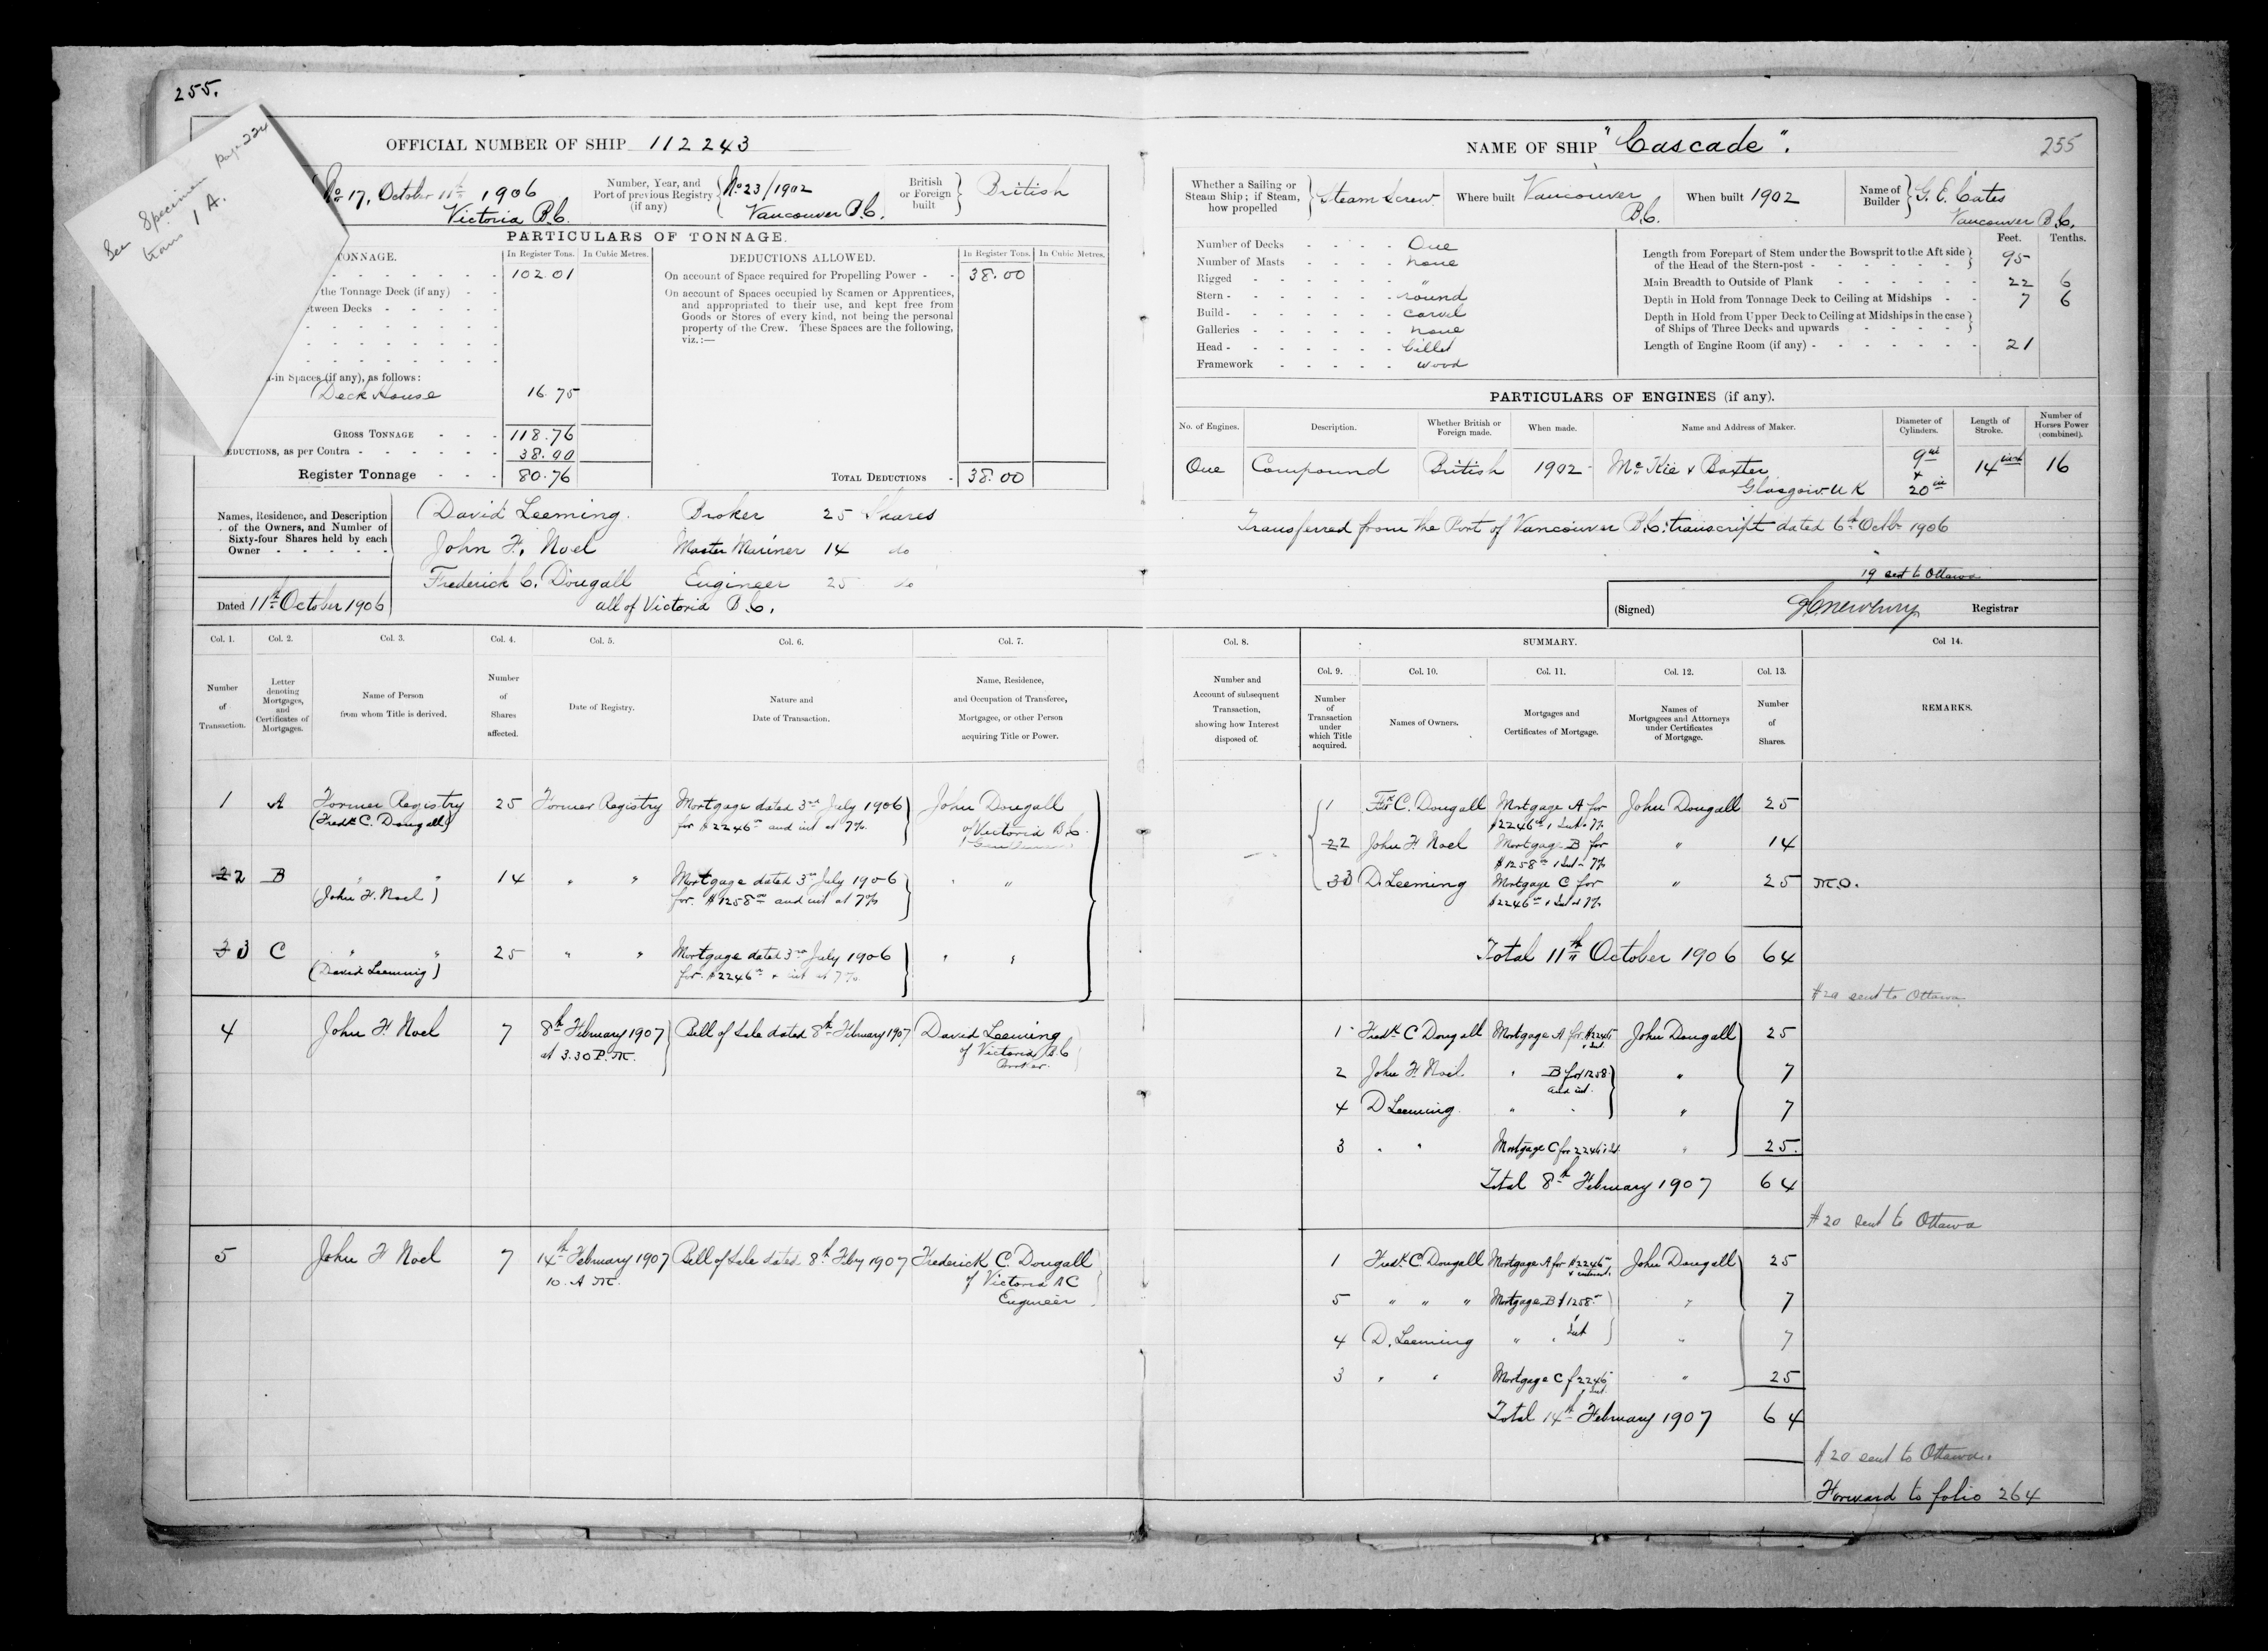 255.
See Specimen page 224
trans 1 A.
OFFICIAL NUMBER OF SHIP 112243
No 17, October 11th 1906
Victoria B.C.
Number, Year, and Port of previous Registry (if any)
No 23/1902
Vancouver B.C.
British or Foreign built
British
PARTICULARS OF TONNAGE.
TONNAGE.
In Register Tons.
In Cubic Metres.
102.01
the Tonnage Deck (if any)
etween Decks
d-in Spaces (if any), as follows:
Deck House 16.75
GROSS TONNAGE 118.76
EDUCTIONS, as per Contra 38.00
Register Tonnage 80.76
DEDUCTIONS ALLOWED.
In Register Tons.
In Cubic Metres.
On account of Space required for Propelling Power 38.00
On account of Spaces occupied by Seamen or Apprentices,
and appropriated to their use, and kept free from
Goods or Stores of every kind, not being the personal
property of the Crew. These Spaces are the following,
viz.:—
TOTAL DEDUCTIONS 38.00
Names, Residence, and Description
of the Owners, and Number of
Sixty-four Shares held by each
Owner
David Leeming Broker 25 Shares
John F. Noel Master Mariner 14 do
Frederick C. Dougall Engineer 25 do
all of Victoria B.C.
Dated 11th October 1906
NAME OF SHIP "Cascade".
255
Whether a Sailing or
Steam Ship; if Steam,
how propelled
Steam Screw
Where built Vancouver B.C.
When built 1902
Name of Builder
G. E. Cates
Vancouver B.C.
Number of Decks One
Number of Masts none
Rigged "
Stern round
Build carvel
Galleries none
Head billet
Framework wood
Feet. Tenths.
Length from Forepart of Stem under the Bowsprit to the Aft side
of the Head of the Stern-post 95
Main Breadth to Outside of Plank 22 6
Depth in Hold from Tonnage Deck to Ceiling at Midships 7 6
Depth in Hold from Upper Deck to Ceiling at Midships in the case
of Ships of Three Decks and upwards
Length of Engine Room (if any) 21
PARTICULARS OF ENGINES (if any).
No. of Engines.
Description.
Whether British or Foreign made.
When made.
Name and Address of Maker.
Diameter of Cylinders.
Length of Stroke.
Number of Horses Power (combined).
One Compound British 1902 McKie & Baxter 9in 14 inch 16
Glasgow. U K & 20in
Transferred from the Port of Vancouver B.C: transcript dated 6th Octbr 1906
19 sent to Ottawa
(Signed) Registrar
Col. 1. Col. 2. Col. 3. Col. 4. Col. 5. Col. 6. Col. 7.
Number of Transaction.
Letter denoting Mortgages, and Certificates of Mortgages.
Name of Person from whom Title is derived.
Number of Shares affected.
Date of Registry.
Nature and Date of Transaction.
Name, Residence, and Occupation of Transferee, Mortgagee, or other Person acquiring Title or Power.
1 A Former Registry 25 Former Registry Mortgage dated 3rd July 1906 John Dougall
(Fredk C. Dougall) for $2246 and int at 7%. of Victoria B.C.
Gentleman
2 2 B " " 14 " " Mortgage dated 3rd July 1906 " "
(John F. Noel) for $1258 and int at 7%
3 3 C " " 25 " " Mortgage dated 3rd July 1906 " "
(David Leeming) for $2246 & int at 7%
4 John F. Noel 7 8th February 1907 Bill of Sale dated 8th February 1907 David Leeming
at 3.30 P.M. of Victoria B.C
Broker.
5 John F Noel 7 14th February 1907 Bill of Sale dated 8th Feby 1907 Frederick C. Dougall
10. A M. of Victoria B C
Engineer
Col. 8.
SUMMARY.
Col 14.
Col. 9. Col. 10. Col. 11. Col. 12. Col. 13.
Number and Account of subsequent Transaction, showing how Interest disposed of.
Number of Transaction under which Title acquired.
Names of Owners.
Mortgages and Certificates of Mortgage.
Names of Mortgagees and Attorneys under Certificates of Mortgage.
Number of Shares.
REMARKS.
1 Fk C. Dougall Mortgage A for John Dougall 25
$2246 & Int 7%
2 2 John F. Noel Mortgage B for " 14
$1258 & Int 7%
3 3 D. Leeming Mortgage C for " 25 M.O.
$2246 & Int at 7%
Total 11th October 1906 64
$20 sent to Ottawa
1 Fredk C Dougall Mortgage A for $2246 John Dougall 25
& Int.
2 John F. Noel " B for 1258 " 7
and int.
4 D Leeming " " " 7
3 " " Mortgage C for 2246 & Int " 25.
Total 8th February 1907 64
$20 sent to Ottawa
1 Fredk C. Dougall Mortgage A for $2246 John Dougall 25
& interest.
5 " " " Mortgage B $1258 " 7
4 D. Leeming " " Int " 7
3 " " Mortgage C f 2246 " 25
Int.
Total 14th February 1907 64
$20 sent to Ottawa.
Forward to folio 264